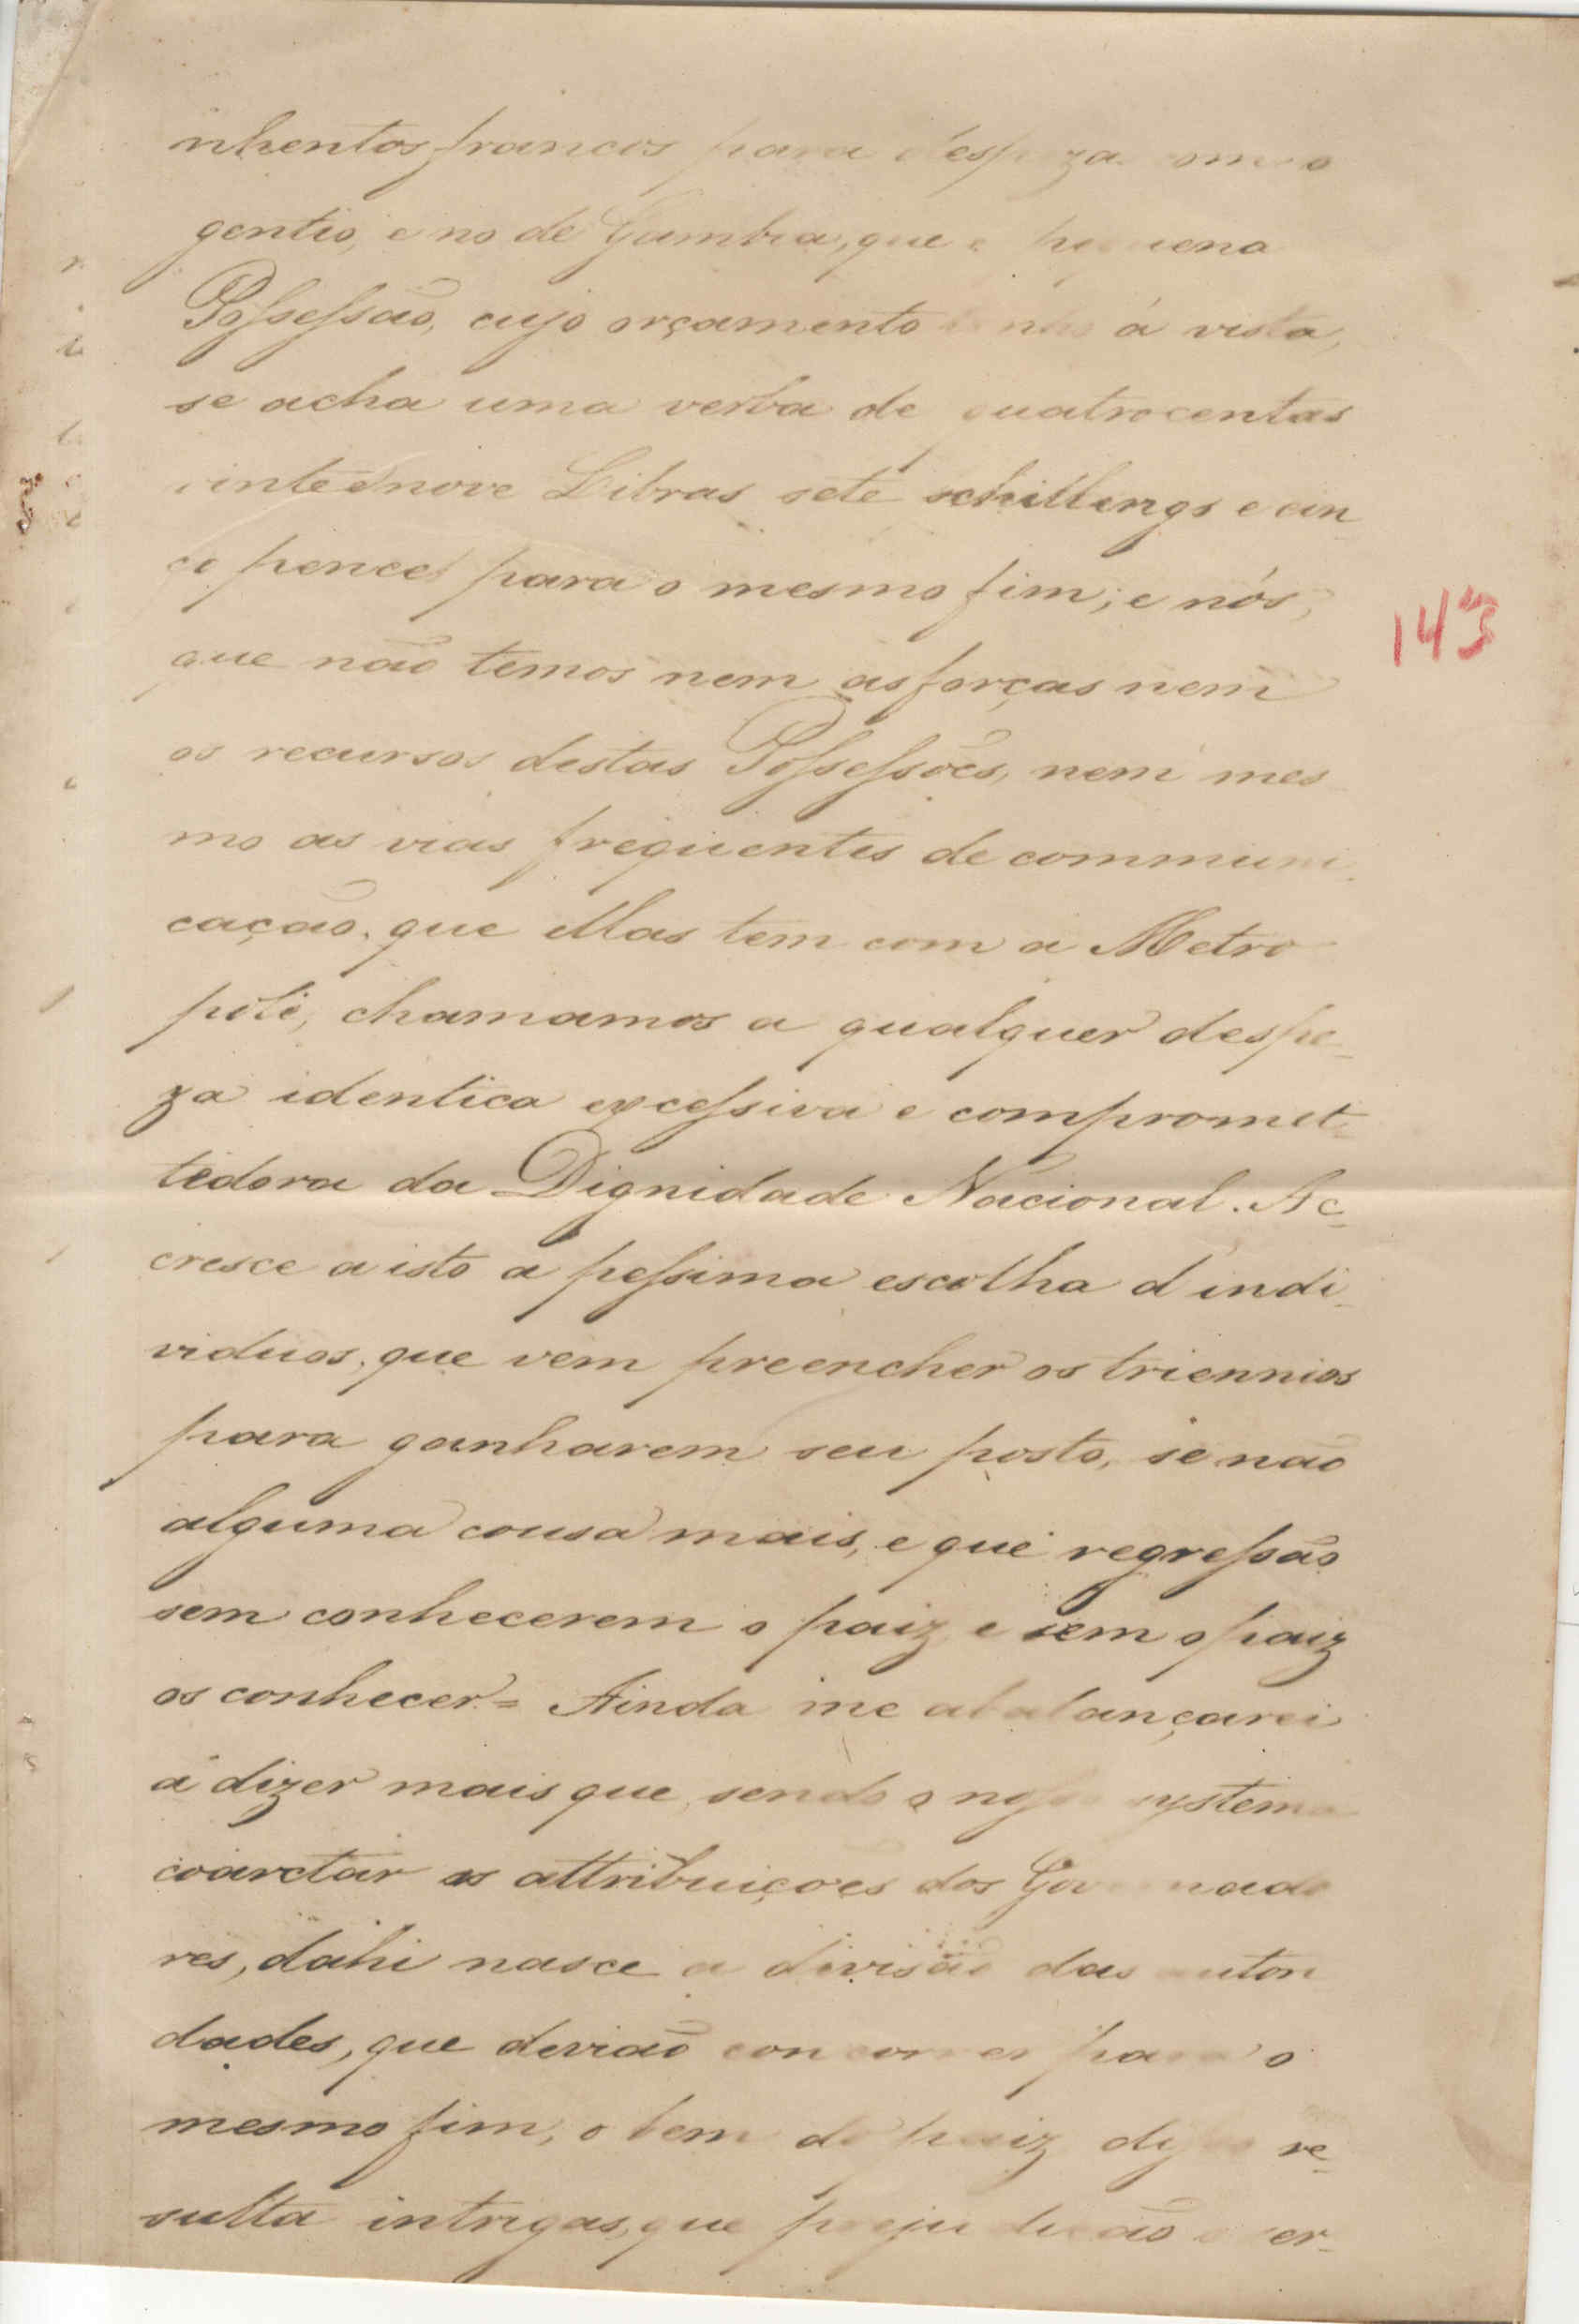 nhentos francos para despeza com o
gentio, e no de Gambia, que é pequena
Possessão, cujo orçamento tenho á vista,
se acha uma verba de quatrocentas
vinte e nove Libras sete schillings e cin
co pences para o mesmo fim; e nós,
que não temos nem as forças nem
os recursos destas Possessões, nem mes
mo as vias frequentes de communi-
cação, que ellas tem com a Metro
poli, chamamos a qualquer despe-
za identica excessiva e compromet-
tedora da Dignidade Nacional. Ac-
cresce a isto a pessima escolha d'indi-
viduos, que vem preencher os triennios
para ganharem seu posto, se não
alguma cousa mais, e que regressão
sem conhecerem o paiz e sem o paiz
os conhecer = Ainda me abalançarei
á dizer mais que, sendo o nosso systema
coarctar as attribuições dos Governado
res, dahi nasce a divisão das autori
dades, que devião concorrer para o
mesmo fim, o bem do paiz, disso re-
sulta intrigas, que prejudicão o ser-
143